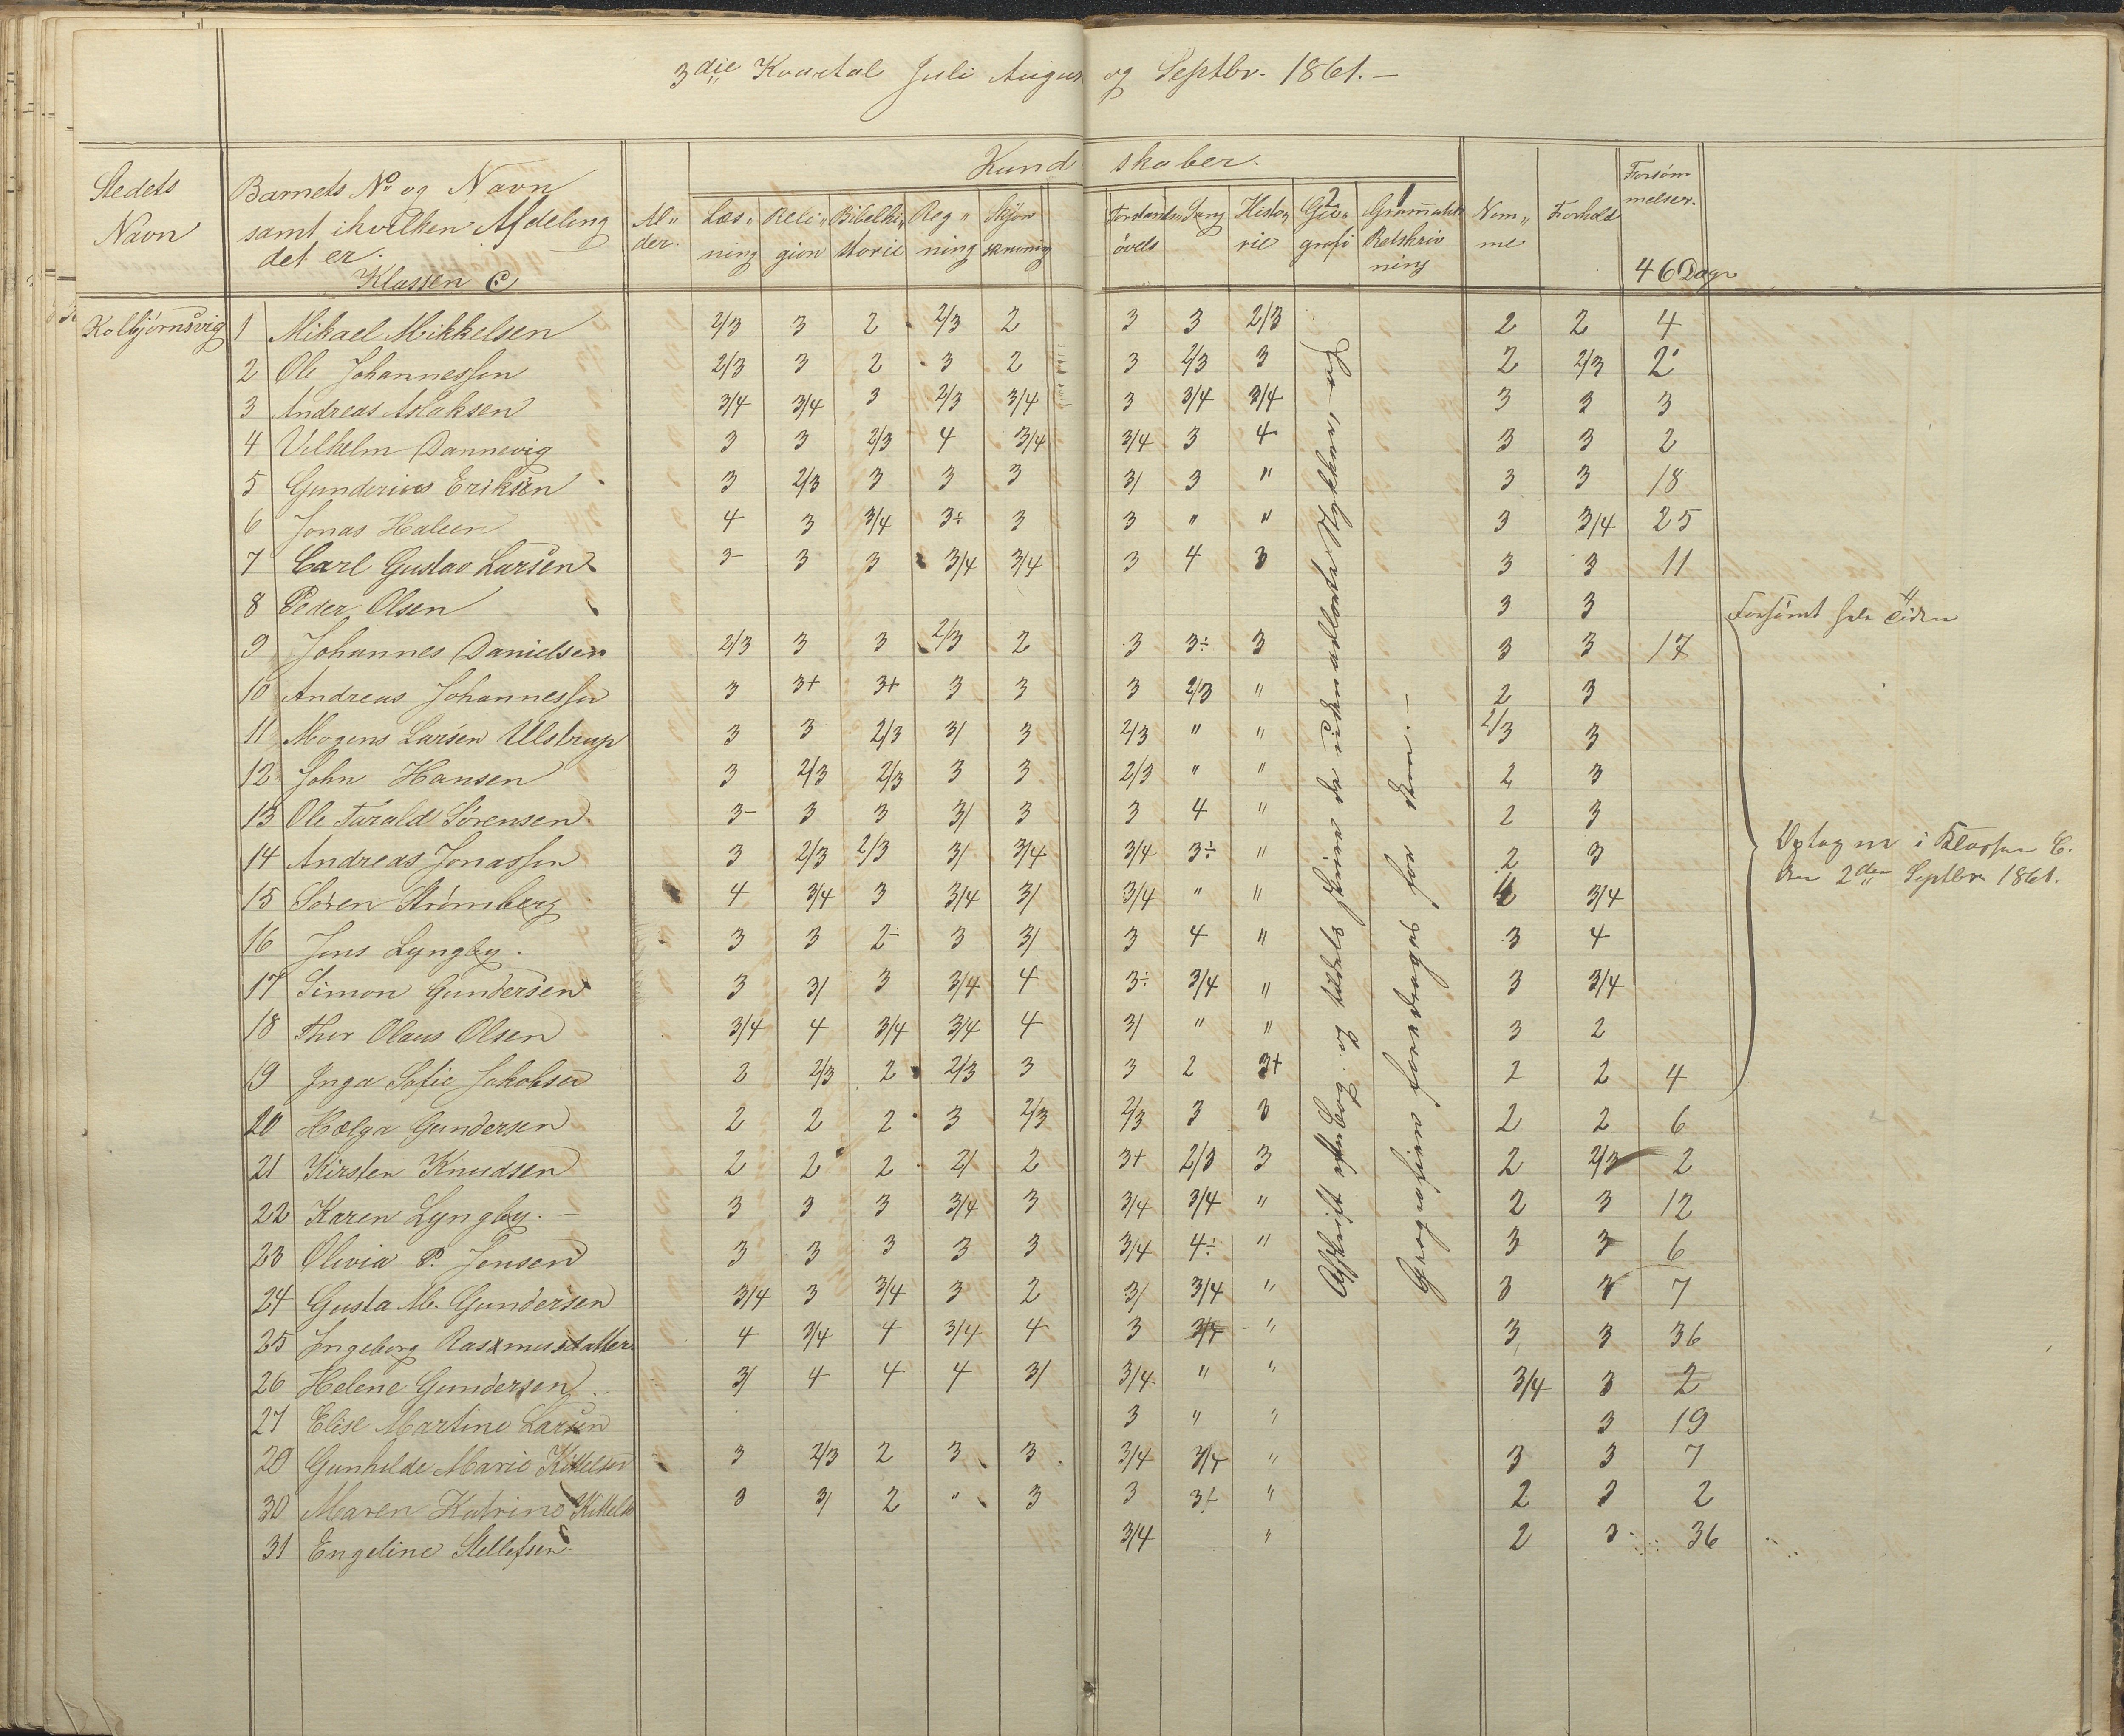 3die Kvartal Juli August og Septbr. 1861. –
Kundskaber.
Stedets Navn
Barnets No og Navn samt i hvilken Afdeling det er. Klassen C
Al- der.
Læs- ning
Reli- gion
Bibelhi- storie
Reg- ning
Skjøn- skrivning
Forstands- øvels
Sang
Histo- rie
Geo- grafi
Gramatik Retskriv- ning
Nem- me
Forhold
Forsøm- melser. 46 Dage
Kolbjørnsvig 1 Mikael Mikkelsen 2/3 3 2 2/3 2 3 3 2/3 2 2 4
2 Ole Johannessen 2/3 3 2 3 2 3 2/3 3 2 2/3 2
3 Andreas Aslaksen 3/4 3/4 3 2/3 3/4 3 3/4 3/4 3 3 3
4 Vilhelm Dannevig 3 3 2/3 4 3/4 3/4 3 4 3 3 2
5 Gunderius Eriksen 3 2/3 3 3 3 3/ 3 " 3 3 18
6 Jonas Halsen 4 3 3/4 3÷ 3 3 " " 3 3/4 25
7 Carl Gustav Larsen 3- 3 3 3/4 3/4 3 4 3 3 3 11
8 Peder Olsen 3 3 Forsømt hele Tiden
9 Johannes Danielsen 2/3 3 3 2/3 2 3 3÷ 3 3 3 17
10 Andreas Johannessen 3 3+ 3+ 3 3 3 2/3 " 2 3
11 Mogens Larsen Ulstrup 3 3 2/3 3/ 3 2/3 " " 2/3 3
12 John Hansen 3 2/3 2/3 3 3 2/3 " " 2 3
13 Ole Tarald Sørensen 3- 3 3 3/ 3 3 4 " 2 3
14 Andreas Jonassen 3 2/3 2/3 3/ 3/4 3/4 3÷ " 2 3
15 Søren Strømberg 4 3/4 3 3/4 3/ 3/4 " " 4 3/4
16 Jens Lyngby. 3 3 2÷ 3 3/ 3 4 " 3 4
17 Simon Gundersen 3 3/ 3 3/4 4 3÷ 3/4 " 3 3/4
18 Thor Olaus Olsen 3/4 4 3/4 3/4 4 3/ " " 3 2
Optagne i Klassen C. den 2den Septbr 1861.
19 Inga Sofie Jakobsen 2 2/3 2 2/3 3 3 2 3+ 2 2 4
20 Hælga Gundersen 2 2 2 3 2/3 2/3 3 3 2 2 6
21 Kirsten Knudsen 2 2 2 2/ 2 3+ 2/3 3 2 2/3 2
22 Karen Lyngby. – 3 3 3 3/4 3 3/4 3/4 " 2 3 12
23 Olivia P. Jensen 3 3 3 3 3 3/4 4÷ " 3 3 6
24 Gusta M. Gundersen 3/4 3 3/4 3 2 3/ 3/4 " 3 3 7
25 Ingeborg Rasmusdatter 4 3/4 4 3/4 4 3 3/4 " 3 3 36
26 Helene Gundersen 3/ 4 4 4 3/ 3/4 " " 3/4 3 2
27 Elise Martine Larsen 3 " " 3 19
29 Gunhilde Marie Kittelsen 3 2/3 2 3 3 3/4 3/4 " 3 3 7
30 Maren Katrine Kittels 3 3/ 2 " 3 3 3÷ " 2 3 2
31 Engeline Stellefsen 3/4 " 2 3 36
Afskrift efter Bog og tildels skrive de udenadlærte Stykker og
Geografien foredrages for dem. –